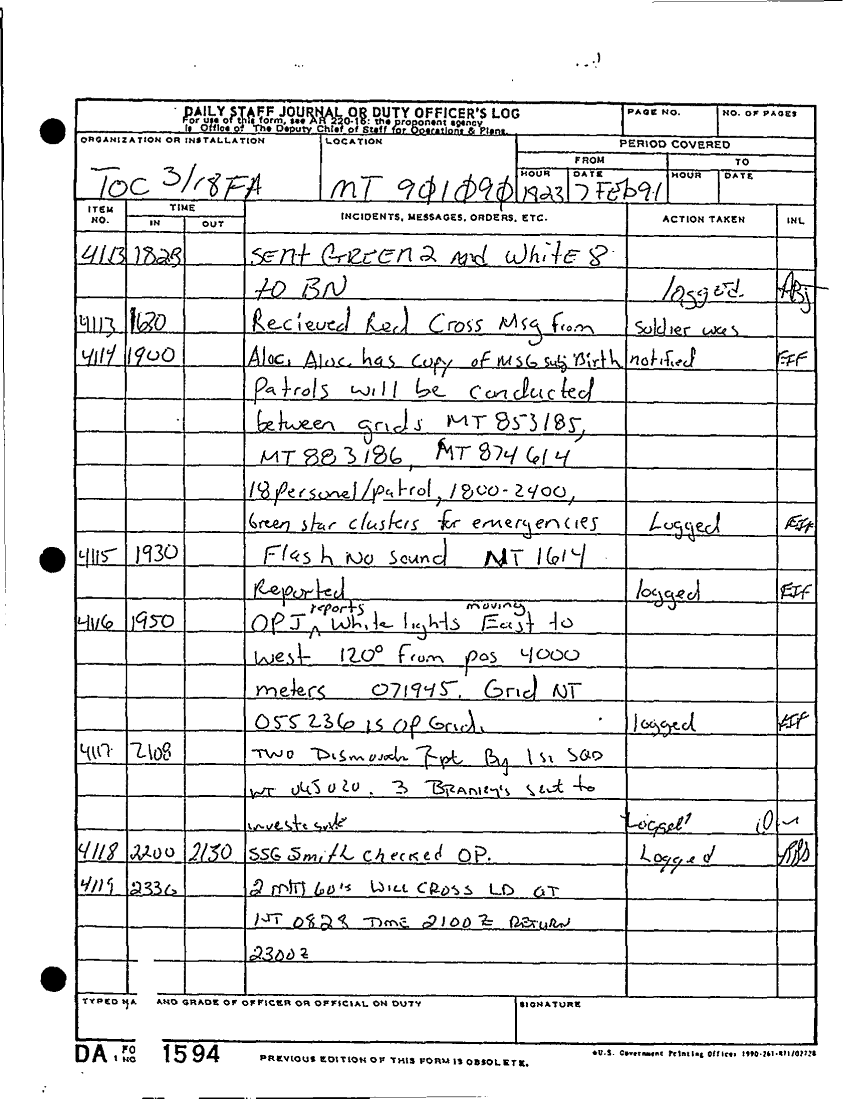 DAILY STAFF JOURNAL OR DUTY OFFICER'S LOG
For use of this form, see AR 220-15: the proponent agency
is Office of The Deputy Chief of Staff for Operations & Plans.
PAGE NO.
NO. OF PAGES
ORGANIZATION OR INSTALLATION
TOC 3/18FA
LOCATION
MT 901090
PERIOD COVERED
FROM
TO
HOUR
1923
DATE
7 FEB91
HOUR
DATE
ITEM NO.
TIME
IN
OUT
INCIDENTS, MESSAGES, ORDERS, ETC.
ACTION TAKEN
INL
4113 1828 SENT GREEN 2 and White 8
to BN logged.
4113 1630 Recieved Red Cross Msg from soldier was
4114 1900 Aloc, Aloc has copy of MSG subj Birth notified EIF
Patrols will be conducted
between grids MT 853185,
MT 883186, MT 874614
18 personel/patrol, 1800-2400,
Green star clusters for emergencies Logged EIF
4115 1930 Flash No sound NT 1614
Reported logged EIF
4116 1950 OPJ reports White lights moving East to
west 120° from pos 4000
meters 071945. Grid NT
055236 is OP Grid. logged EIF
4117 2108 TWO Rpt By 1st SQD
045020. 3 sent to
investigate Logged
4118 2200 2130 SSG Smith checked OP. Logged
4119 2336 2 60's WILL CROSS LD AT
NT 0828 TIME 2100Z RETURN
2300Z
TYPED NA AND GRADE OF OFFICER OR OFFICIAL ON DUTY
SIGNATURE
DA 1 FO NO 1594
PREVIOUS EDITION OF THIS FORM IS OBSOLETE.
U.S. Government Printing Office: 1990-261-871/02728